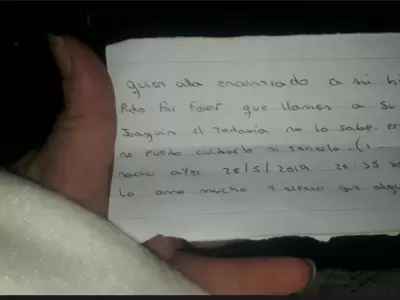 quien alla encontrado a mi hi
Pido Por Favor que llamen a Su
Joaquin el Todavia no lo sabe.
no Puedo cuidarlo ni tenerlo. (
nacio ayer 28/5/2019 20:35
Lo amo mucho y espero que algu